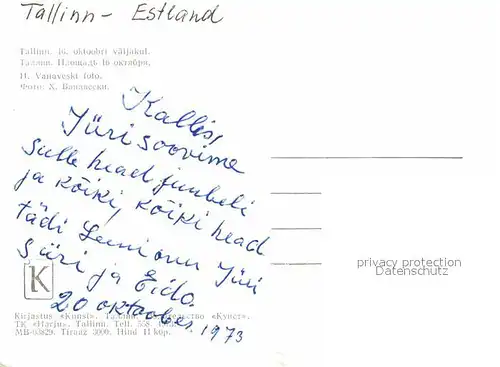 Tallinn - Estland
Tallinn. 16. oktoobri väljakul.
Таллин. Площадь 16 октября.
H. Vanaveski foto.
Фото: Х. Ванавески.
Kallis
Jüri soovime
Sulle head juubeli
ja kõiki, kõiki head
tädi Leeni onu Jüri
Siiri ja Eido.
20 oktoober 1973
K
privacy protection
Datenschutz
Kirjastus «Kunst». Tallinn. Издательство «Кунст».
TK «Harju». Tallinn. Tell. 558.
MB-03829. Tiraaž 3000. Hind 11 kop.